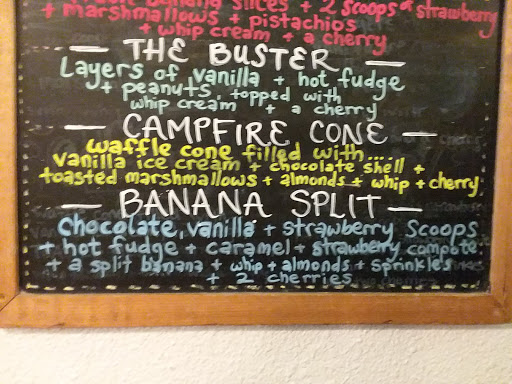 banana slices + 2 scoops of strawberry
+ marshmallows + pistachios
+ whip cream + a cherry
— THE BUSTER —
Layers of vanilla + hot fudge
+ peanuts, topped with
whip cream + a cherry
— CAMPFIRE CONE —
waffle cone filled with....
vanilla ice cream + chocolate shell +
toasted marshmallows + almonds + whip + cherry
— BANANA SPLIT —
Chocolate, vanilla + strawberry scoops
+ hot fudge + caramel + strawberry compote
+ a split banana + whip + almonds + sprinkles
+ 2 cherries